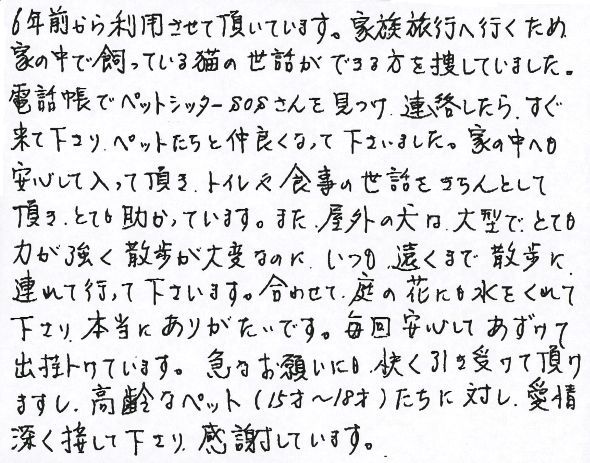 6年前から利用させて頂いています。家族旅行へ行くため
家の中で飼っている猫の世話ができる方を捜していました。
電話帳でペットシッターSOSさんを見つけ、連絡したら、すぐ
来て下さり、ペットたちと仲良くなって下さいました。家の中へも
安心して入って頂き、トイレや食事の世話をきちんとして
頂き、とても助かっています。また、屋外の犬は、大型で、とても
力が強く散歩が大変なのに、いつも遠くまで散歩に
連れて行って下さいます。合わせて、庭の花にも水をくれて
下さり、本当にありがたいです。毎回安心してあずけて
出掛けています。急なお願いにも、快く引き受けて頂け
ますし、高齢なペット(15才〜18才)たちに対し、愛情
深く接して下さり、感謝しています。